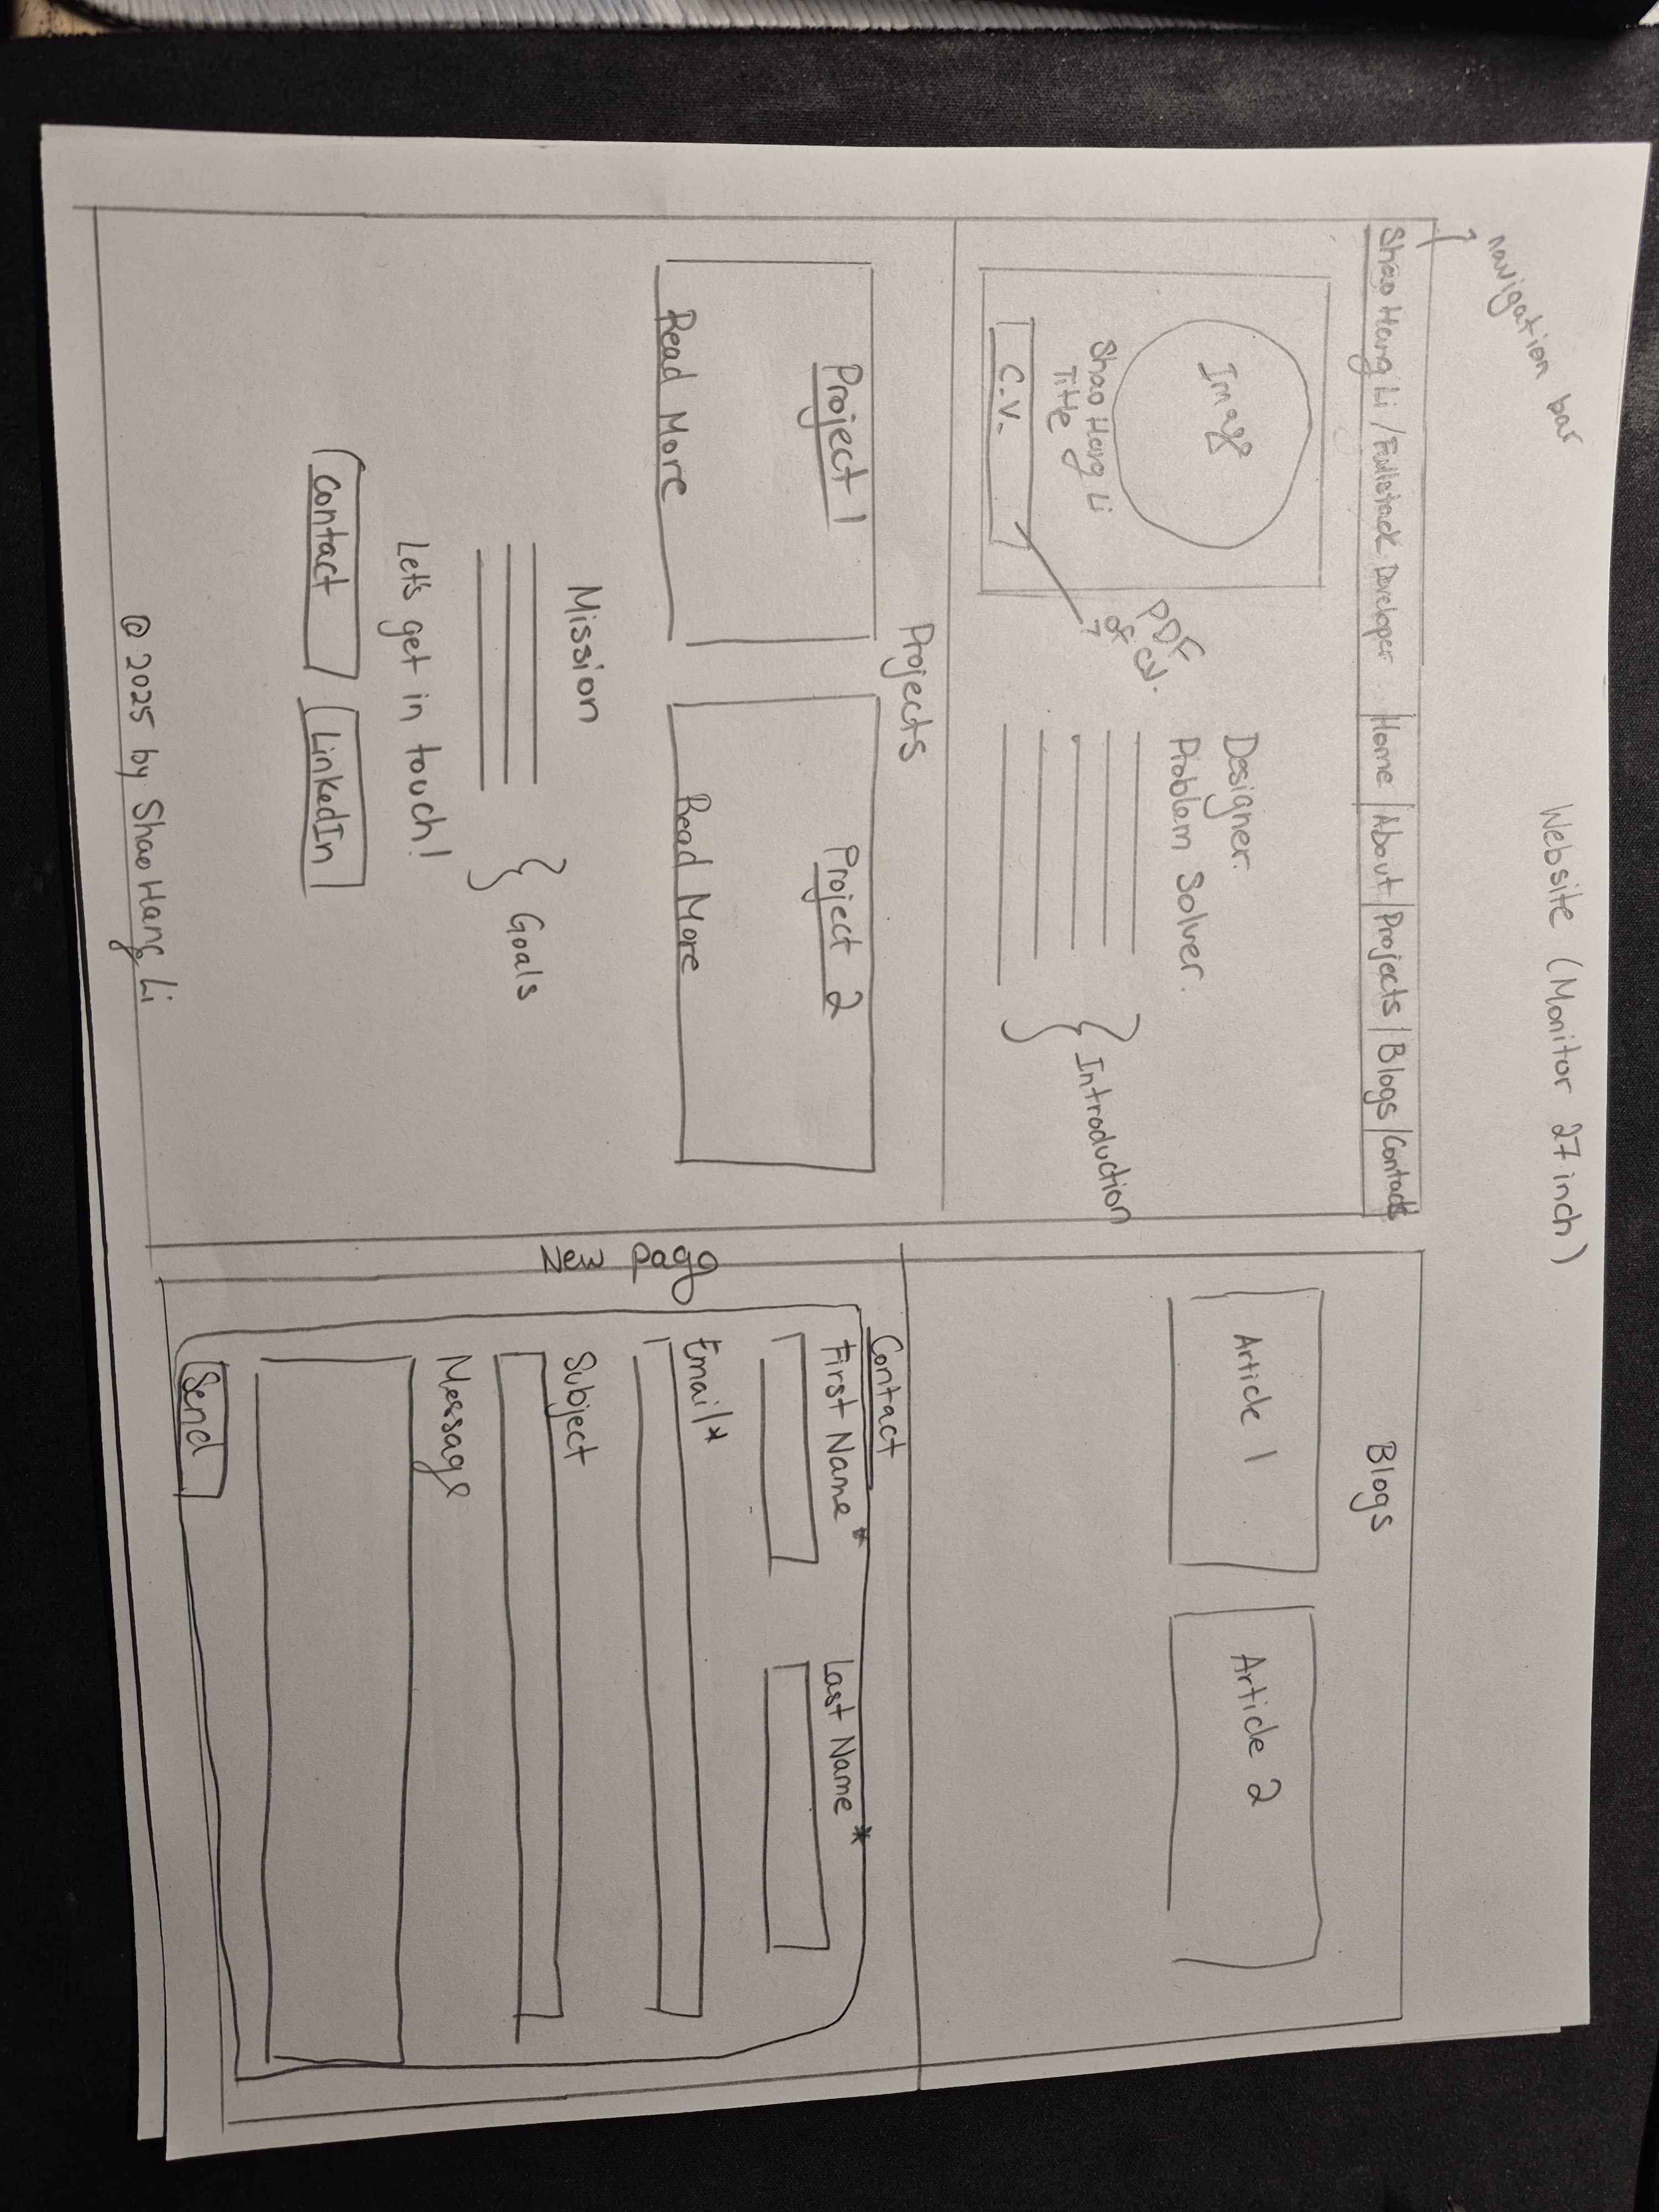 Website (Monitor 27 inch)
navigation bar
Shao Hang Li / Fullstack Developer
Home
About
Projects
Blogs
Contacts
Image
Shao Hang Li
Title
C.V.
PDF
of CV.
Designer.
Problem Solver.
Introduction
Projects
Project 1
Read More
Project 2
Read More
Mission
Goals
Let's get in touch!
Contact
LinkedIn
© 2025 by Shao Hang Li
New page
Blogs
Article 1
Article 2
Contact
First Name*
Last Name*
Email*
Subject
Message
Send